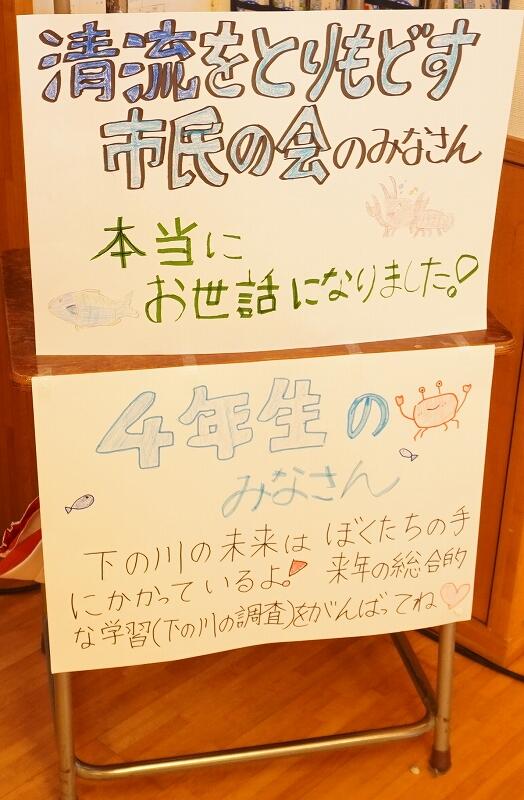 清流をとりもどす
市民の会のみなさん
本当に
お世話になりました!
4年生の
みなさん
下の川の未来は ぼくたちの手
にかかっているよ! 来年の総合的
な学習(下の川の調査)をがんばってね